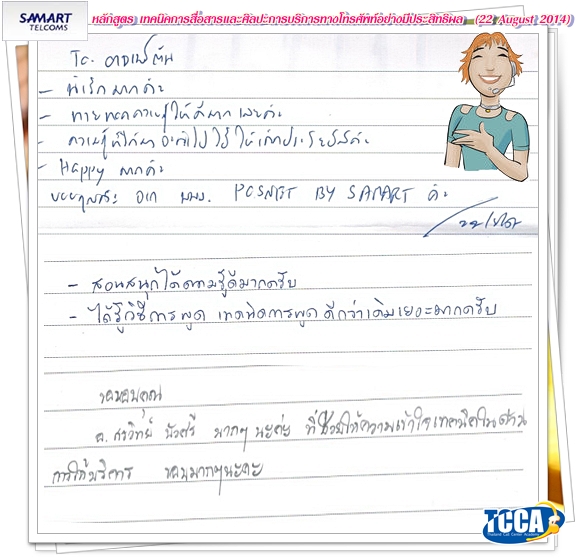 SAMART
TELCOMS
หลักสูตร เทคนิคการสื่อสารและศิลปะการบริการทางโทรศัพท์อย่างมีประสิทธิผล (22 August 2014)
To. อาจารย์
- น่ารักมากค่ะ
- ถ่ายทอดความรู้ได้ดีมากเลยค่ะ
- ความรู้ที่ได้มา จะนำไปใช้ให้เกิดประโยชน์ค่ะ
- Happy มากค่ะ
ขอบคุณค่ะ จาก POSNET BY SAMART ค่ะ
- สอนสนุกได้ความรู้ดีมากครับ
- ได้รู้วิธีการพูด เทคนิคการพูด ดีกว่าเดิมเยอะมากครับ
ขอบคุณ
อ. ศรวิทย์ บัวศรี มากๆ นะค่ะ ที่ช่วยให้ความเข้าใจเทคนิคในด้าน
การให้บริการ ขอบคุณมากๆนะคะ
TCCA
Thailand Call Center Academy